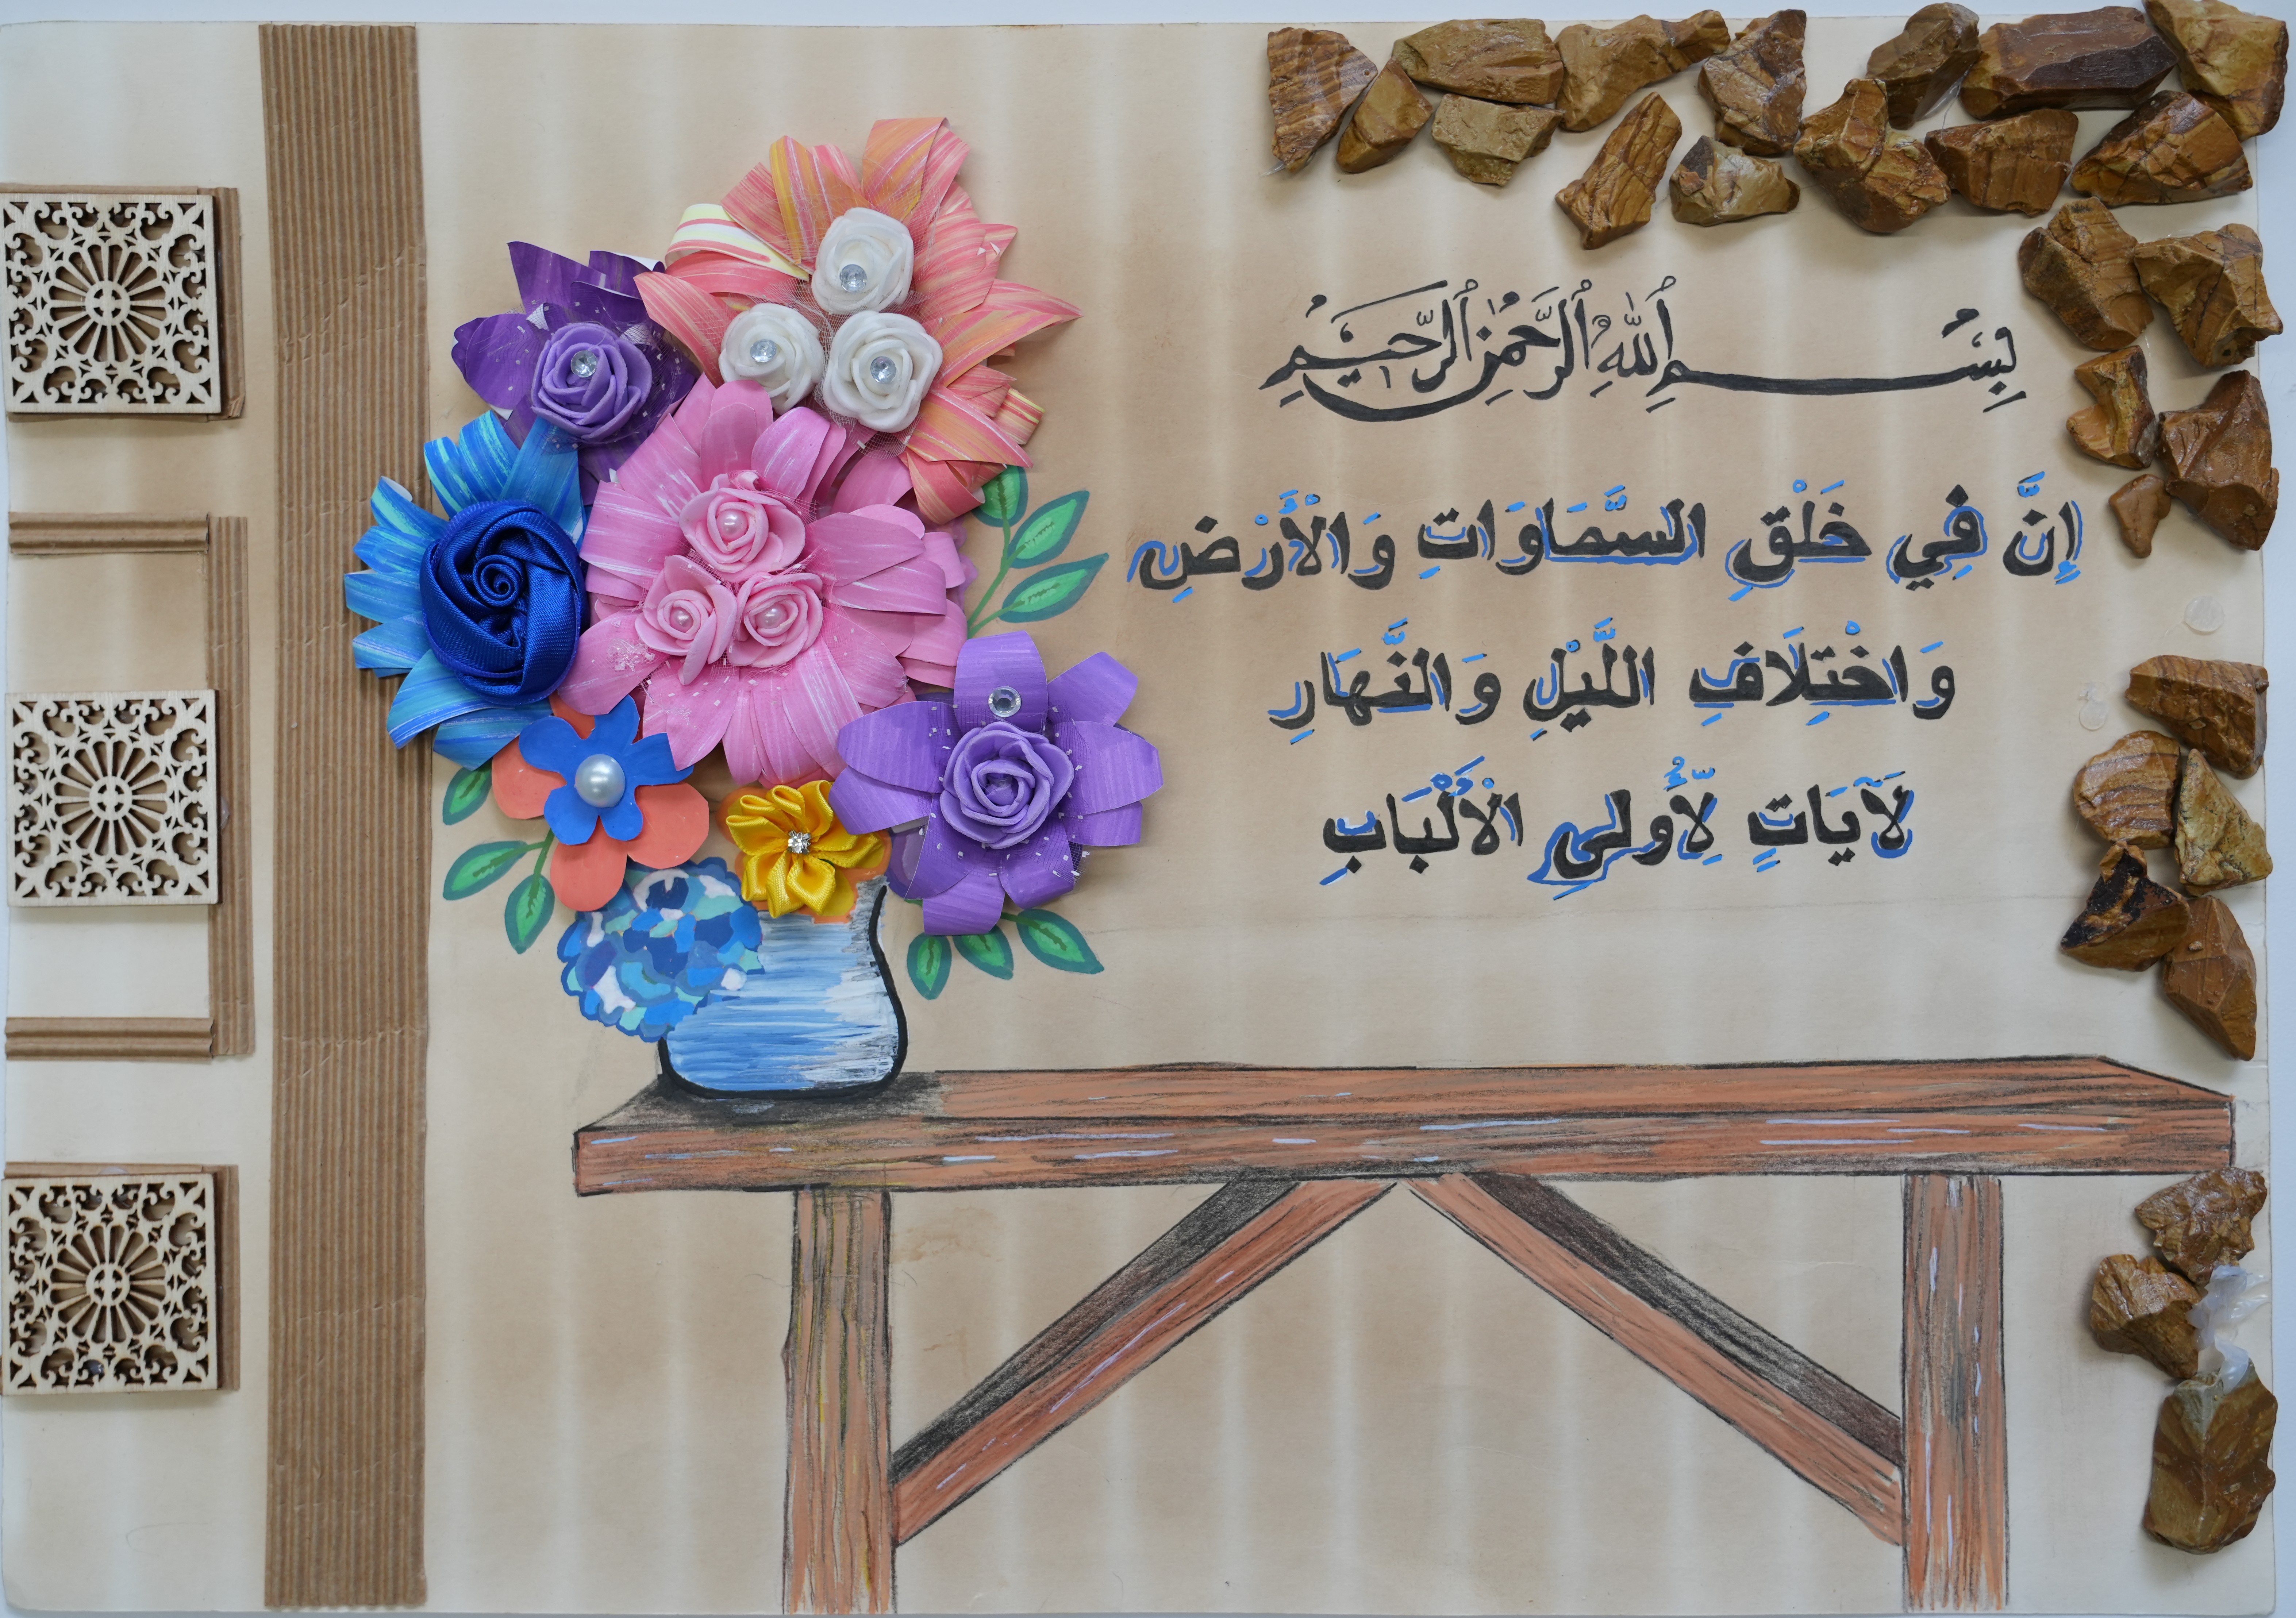 بِسْمِ ٱللَّهِ ٱلرَّحْمَٰنِ ٱلرَّحِيمِ
إِنَّ فِي خَلْقِ السَّمَاوَاتِ وَالْأَرْضِ
وَاخْتِلَافِ اللَّيْلِ وَالنَّهَارِ
لَآيَاتٍ لِّأُولِى الْأَلْبَابِ